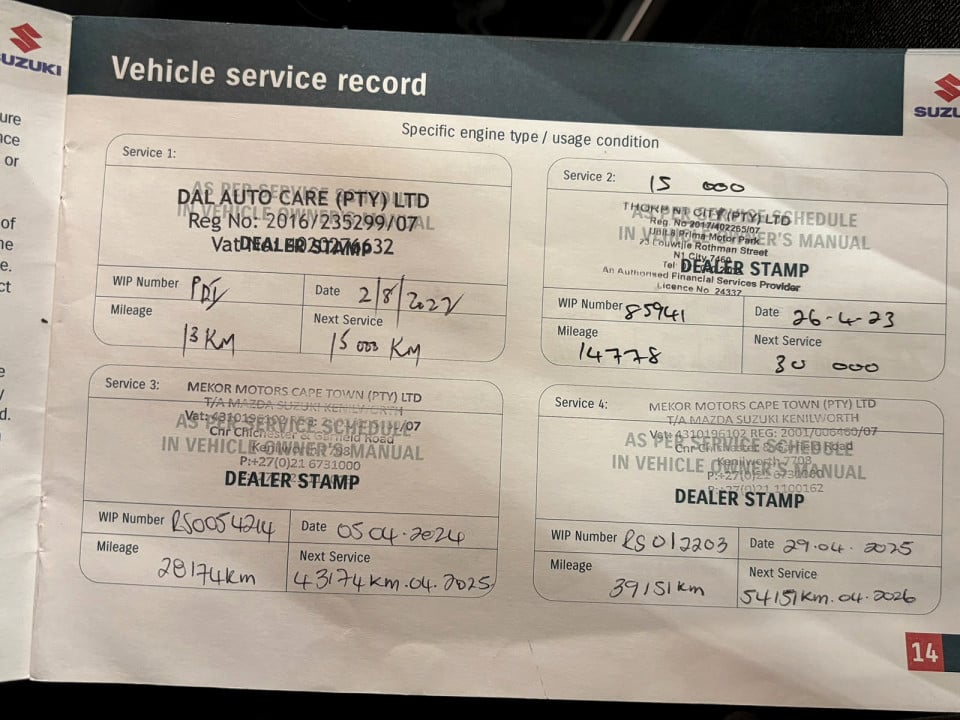 SUZUKI
ure
nce
or
of
he
e.
ct
e
y
d.
Vehicle service record
SUZU
Specific engine type / usage condition
Service 1:
AS PER SERVICE SCHEDULE
IN VEHICLE OWNER'S MANUAL
DEALER STAMP
DAL AUTO CARE (PTY) LTD
Reg No: 2016/235299/07
Vat No:
WIP Number PDI
Date 2/8/2022
Mileage
13 KM
Next Service
15 000 KM
Service 2: 15 000
AS PER SERVICE SCHEDULE
IN VEHICLE OWNER'S MANUAL
DEALER STAMP
THORP N1 CITY (PTY) LTD
Reg. No 2017/402265/07
Unit 8 Prima Motor Park
75 Louwtjie Rothman Street
N1 City 7460
Tel
An Authorised Financial Services Provider
Licence No 24337
WIP Number 85941
Date 26-4-23
Mileage
14778
Next Service
30 000
Service 3:
MEKOR MOTORS CAPE TOWN (PTY) LTD
T/A MAZDA SUZUKI KENILWORTH
Vat: 4310196102 REG: /07
Cnr Chichester & Garfield Road
Kenilworth 7708
P:+27(0)21 6731000
AS PER SERVICE SCHEDULE
IN VEHICLE OWNER'S MANUAL
DEALER STAMP
WIP Number RS0054214
Date 05.04.2024
Mileage
28174km
Next Service
43174km.04.2025
Service 4:
MEKOR MOTORS CAPE TOWN (PTY) LTD
T/A MAZDA SUZUKI KENILWORTH
Vat: 4310196102 REG: 2001/006460/07
Cnr Chichester & Garfield Road
Kenilworth 7708
P:+27(0)21 6731000
+27(0)21 1100162
AS PER SERVICE SCHEDULE
IN VEHICLE OWNER'S MANUAL
DEALER STAMP
WIP Number RS012203
Date 29.04.2025
Mileage
39151km
Next Service
54151km.04.2026
14